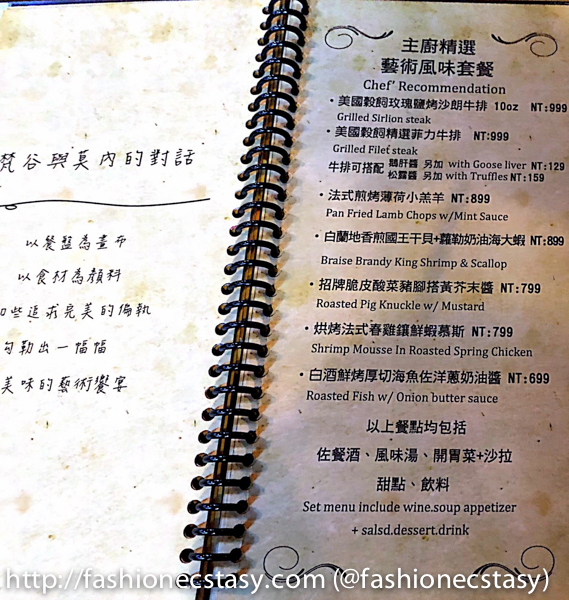 梵谷與莫內的對話
以餐盤為畫布
以食材為顏料
些追求完美的偏執
勾勒出一幅幅
美味的藝術饗宴
主廚精選
藝術風味套餐
Chef' Recommendation
・美國穀飼玫瑰鹽烤沙朗牛排 10oz NT:999
Grilled Sirlion steak
・美國穀飼精選菲力牛排 NT:999
Grilled Filet steak
牛排可搭配 鵝肝醬 另加 with Goose liver NT:129
松露醬 另加 with Truffles NT:159
・法式煎烤薄荷小羔羊 NT:899
Pan Fried Lamb Chops w/Mint Sauce
・白蘭地香煎國王干貝+蘿勒奶油海大蝦 NT:899
Braise Brandy King Shrimp & Scallop
・招牌脆皮酸菜豬腳搭黃芥末醬 NT:799
Roasted Pig Knuckle w/ Mustard
・烘烤法式春雞鑲鮮蝦慕斯 NT:799
Shrimp Mousse In Roasted Spring Chicken
・白酒鮮烤厚切海魚佐洋蔥奶油醬 NT:699
Roasted Fish w/ Onion butter sauce
以上餐點均包括
佐餐酒、風味湯、開胃菜+沙拉
甜點、飲料
Set menu include wine.soup appetizer
+ salsd.dessert.drink
http://fashionecstasy.com (@fashionecstasy)